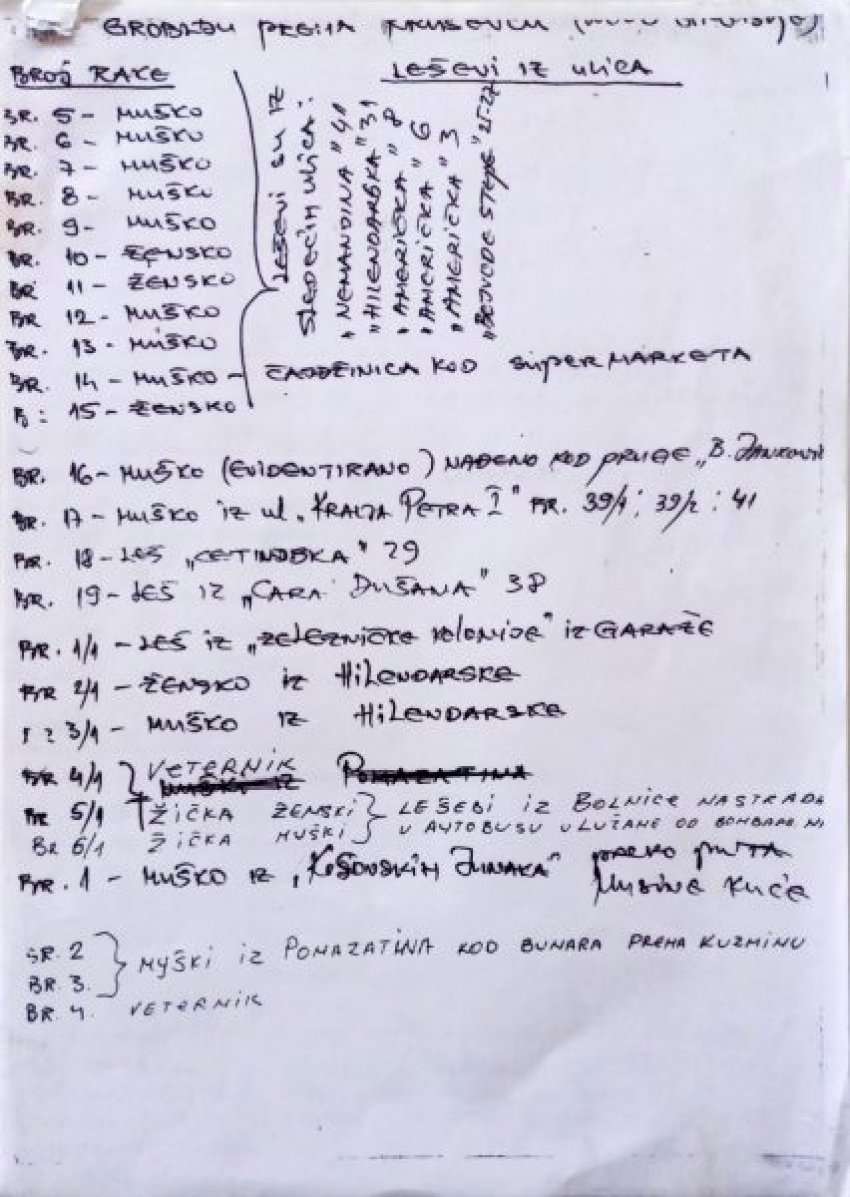 GROBLJU PREMA KRUŠEVCU
BROJ RAKE
LEŠEVI IZ ULICA
BR. 5 - MUŠKO
BR. 6 - MUŠKO
BR. 7 - MUŠKO
BR. 8 - MUŠKO
BR. 9 - MUŠKO
BR. 10 - ŽENSKO
BR 11 - ŽENSKO
BR 12 - MUŠKO
BR. 13 - MUŠKO
BR. 14 - MUŠKO - ČAJDŽINICA KOD SUPERMARKETA
B: 15 - ŽENSKO
LEŠEVI SU IZ
SLEDEĆIH ULICA:
"NEMANJINA" 41
"HILENDARSKA" 31
"AMERIČKA" 8
"AMERIČKA" 6
"AMERIČKA" 3
"VOJVODE STEPE" 25-27
BR. 16 - MUŠKO (EVIDENTIRANO) NAĐENO KOD PRUGE „B. JANKOVIĆ
BR. 17 - MUŠKO IZ ul. „KRALJA PETRA I" BR. 39/1; 39/2; 41
BR. 18 - LEŠ „CETINJSKA" 29
BR. 19 - LEŠ IZ „CARA DUŠANA" 38
BR. 1/1 - LEŠ iz „ŽELEZNIČKE KOLONIJE" iz GARAŽE
BR 2/1 - ŽENSKO iz HILENDARSKE
3/1 - MUŠKO IZ HILENDARSKE
BR 4/1 VETERNIK
BR 5/1 ŽIČKA ŽENSKI } LEŠEBI IZ BOLNICE NASTRADA
BR 6/1 ŽIČKA MUŠKI } U AUTOBUSU U LUŽANE OD BOMBARD. N
BR. 1 - MUŠKO IZ „KOSOVSKIH JUNAKA" PREKO PUTA
Musine KUĆE
BR. 2
BR. 3. } MYŠKI IZ POMAZATINA KOD BUNARA PREMA KUZMINU
BR. 4. VETERNIK